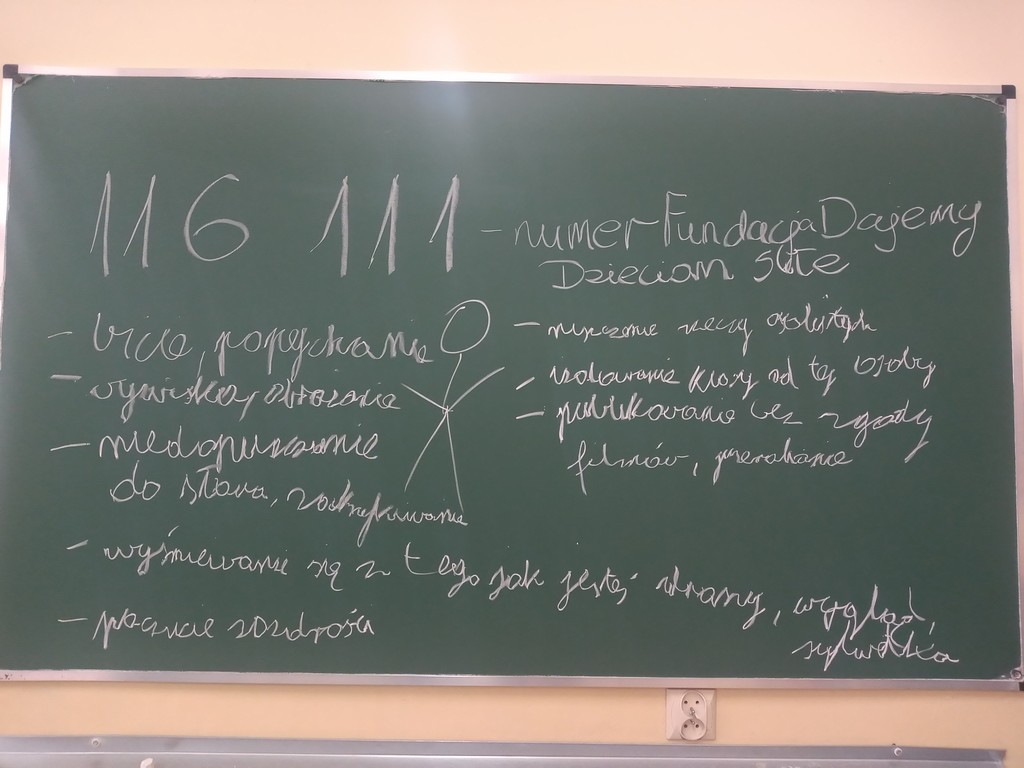 116 111 - numer Fundacja Dajemy
Dzieciom Siłę
- bicie, popychanie
- wyzwiska, obrażanie
- niedopuszczanie
do słowa, zakrzykiwanie
- wyśmiewanie się z tego jak jesteś ubrany, wygląd,
sylwetka
- poczucie zazdrości
- niszczenie rzeczy osobistych
- izolowanie klasy od tej osoby
- publikowanie bez zgody
filmów, przerabianie